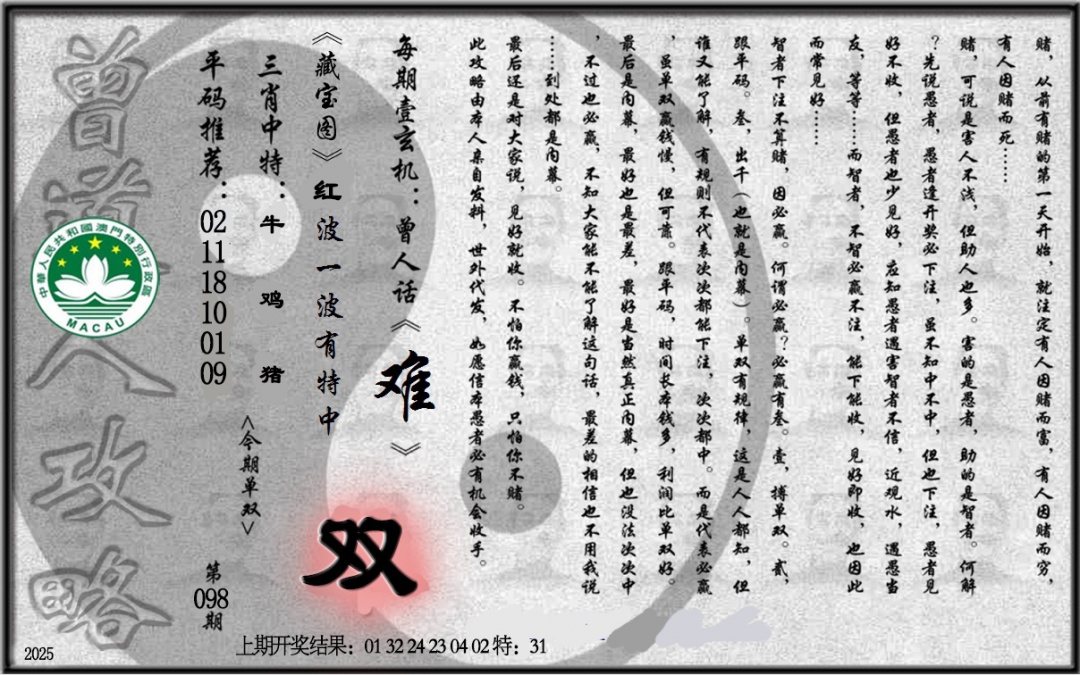 赌，从前有赌的第一天开始，就注定有人因赌而富，有人因赌而穷，
有人因赌而死……
赌，可说是害人不浅，但助人也多。害的是愚者，助的是智者。何解
？先说愚者，愚者逢开奖必下注，虽不知中不中，但也下注，愚者见
好不收，但愚者也少见好，应知愚者遇害智者不信，近观水，遇愚当
友，等等……而智者，不智必赢不注，能下能收，见好即收，也因此
而常见好……
智者下注不算赌，因必赢。何谓必赢？必赢有叁。壹，搏单双。贰，
跟平码。叁，出千（也就是内幕）。单双有规律，这是人人都知，但
谁又能了解，有规则不代表次次都能下注，次次都中。而是代表必赢
，虽单双赢钱慢，但可靠。跟平码，时间长本钱多，利润比单双好。
最后是内幕，最好也是最差，最好是当然真正内幕，但也没法次次中
，不过也必赢，不知大家能不能了解这句话，最差的相信也不用我说
……到处都是内幕。
最后还是对大家说，见好就收。不怕你赢钱，只怕你不赌。
此攻略由本人亲自发料，世外代发，如愿信本愚者必有机会收手。
每期壹玄机：曾人话《难》
《藏宝图》红波一波有特中
双
三肖中特：牛 鸡 猪
<今期单双>
平码推荐：02 11 18 10 01 09
第098期
曾道人攻略
中華人民共和國澳門特別行政區
MACAU
上期开奖结果：01 32 24 23 04 02 特：31
2025